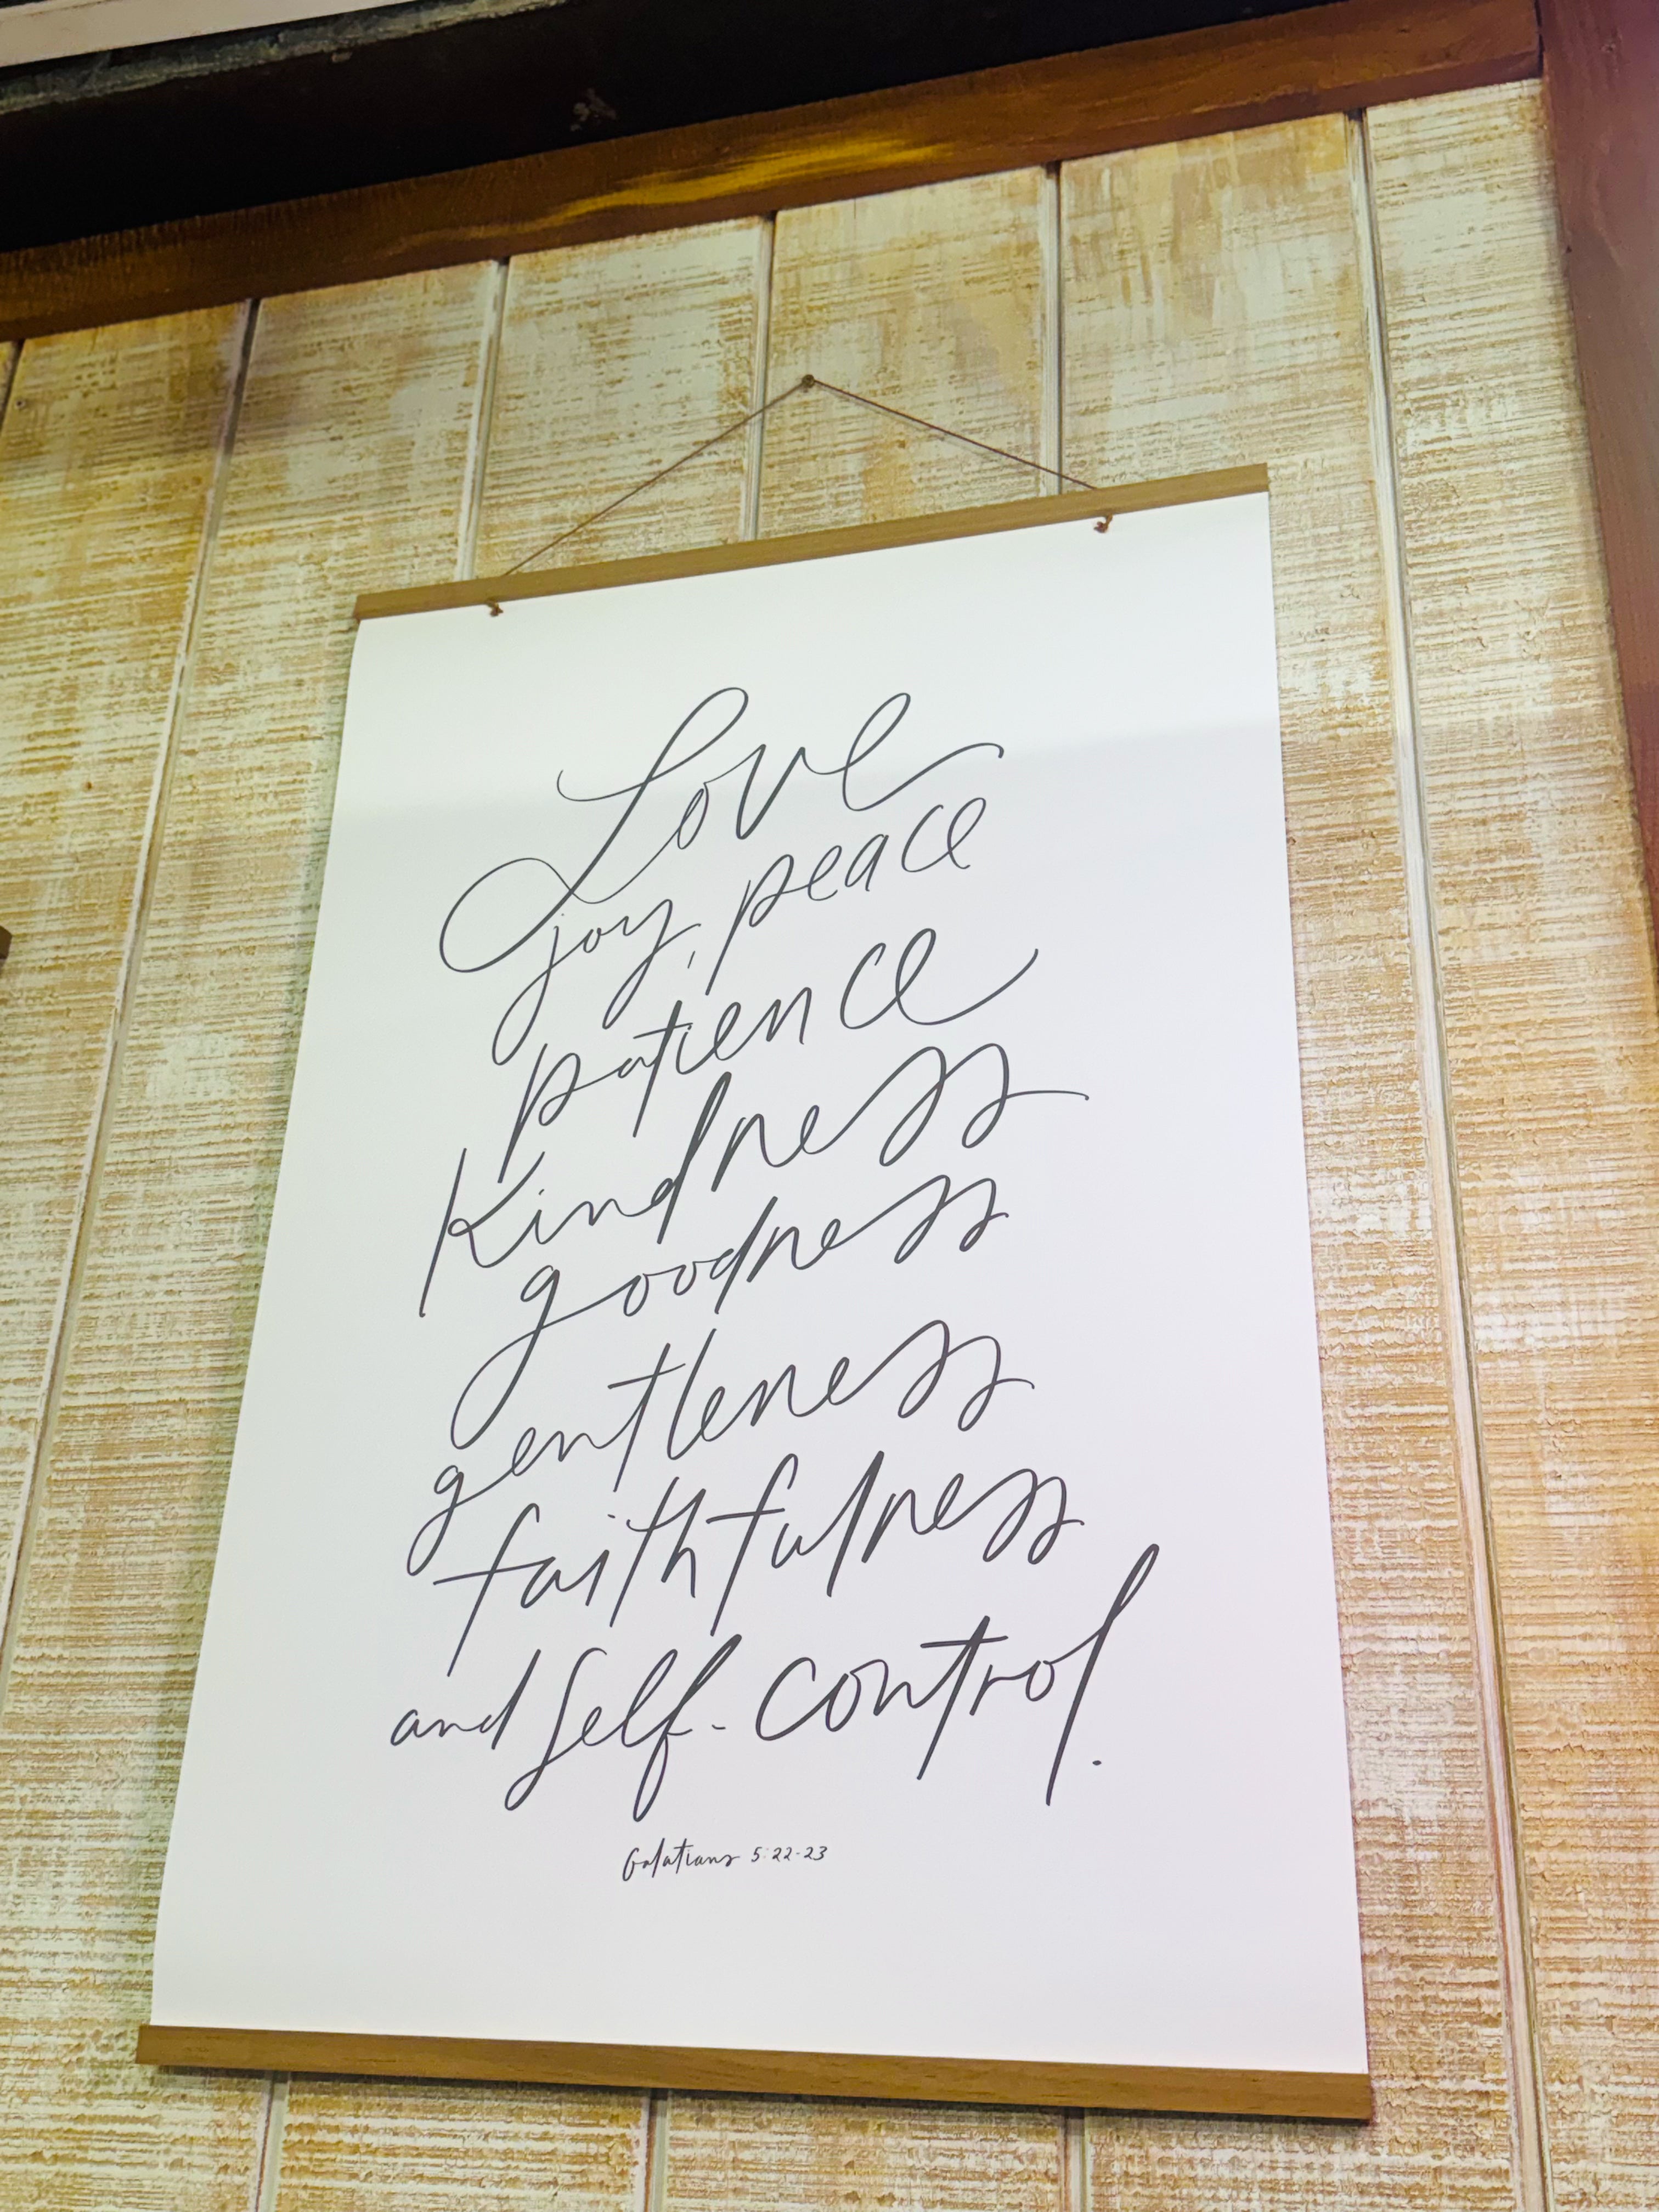 Love
joy, peace
patience
Kindness
goodness
gentleness
faithfulness
and self-control.
Galatians 5:22-23